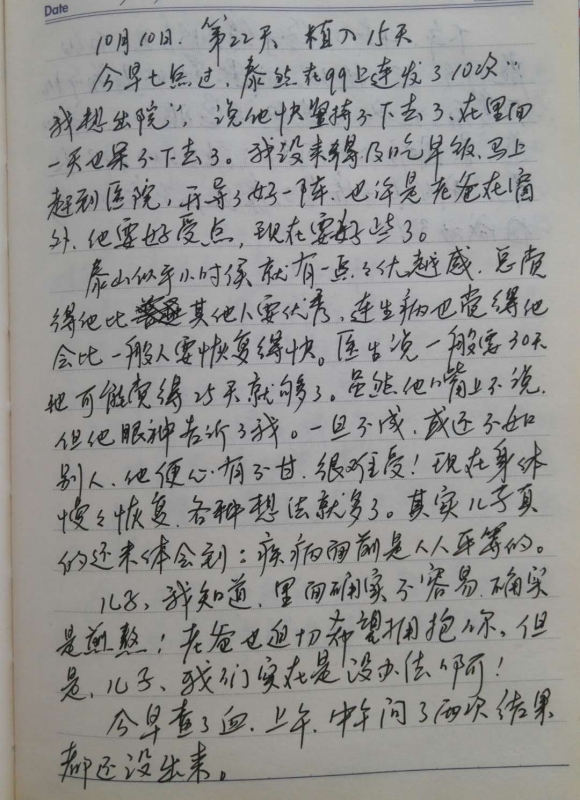 Date
10月10日. 第22天 植入15天
今早七点过, 泰然在QQ上连发了10次“
我想出院”, 说他快坚持不下去了, 在里面
一天也呆不下去了。我没来得及吃早饭, 马上
赶到医院, 开导了好一阵, 也许是老爸在窗
外, 他要好受点, 现在要好些了。
泰山似乎小时侯就有一点点优越感, 总觉
得他比其他人要优秀, 连生病也觉得他
会比一般人要恢复得快。医生说一般要30天
他可能觉得25天就够了。虽然他嘴上不说,
但他眼神告诉了我。一旦不成, 或还不如
别人, 他便心有不甘, 很难受! 现在身体
慢慢恢复, 各种想法就多了。其实儿子真
的还未体会到: 疾病面前是人人平等的。
儿子, 我知道, 里面确实不容易, 确实
是煎熬! 老爸也迫切希望拥抱你, 但
是, 儿子, 我们实在是没办法啊!
今早查了血, 上午, 中午问了两次结果
都还没出来。